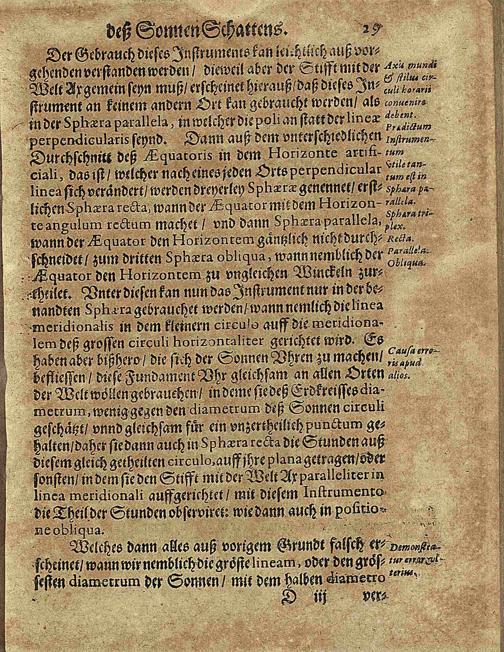 deß Sonnen Schattens. 29
Der Gebrauch dieses Instruments kan leichtlich auß vor-
gehenden verstanden werden / dieweil aber der Stifft mit der
Welt Ax gemein seyn muß / erscheinet hierauß / daß dieses In-
strument an keinem andern Ort kan gebraucht werden / als
in der Sphæra parallela, in welcher die poli an statt der lineæ
perpendicularis seynd. Dann auß dem unterschiedlichen
Durchschnitt deß Æquatoris in dem Horizonte artifi-
ciali, das ist / welcher nach eines jeden Orts perpendicular
linea sich verändert / werden dreyerley Sphæræ genennet / erst-
lichen Sphæra recta, wann der Æquator mit dem Horizon-
te angulum rectum machet / und dann Sphæra parallela,
wann der Æquator den Horizontem gäntzlich nicht durch-
schneidet / zum dritten Sphæra obliqua, wann nemblich der
Æquator den Horizontem zu vngleichen Winckeln zur-
theilet. Vnter diesen kan nun das Instrument nur in der be-
nandten Sphæra gebrauchet werden / wann nemlich die linea
meridionalis in dem kleinern circulo auff die meridiona-
lem deß grossen circuli horizontaliter gerichtet wird. Es
haben aber bißhero / die sich der Sonnen Vhren zu machen /
befliessen / diese Fundament Vhr gleichsam an allen Orten
der Welt wöllen gebrauchen / in deme sie deß Erdkreisses dia-
metrum, wenig gegen den diametrum deß Sonnen circuli
geschätzt / vnnd gleichsam für ein vnzertheilich punctum ge-
halten / daher sie dann auch in Sphæra recta die Stunden auß
diesem gleich getheilten circulo, auff jhre plana getragen / oder
sonsten / in dem sie den Stifft mit der Welt Ax paralleliter in
linea meridionali auffgerichtet / mit diesem Instrumento
die Theil der Stunden observiret: wie dann auch in positio-
ne obliqua.
Welches dann alles auß vorigem Grundt falsch er-
scheinet / wann wir nemblich die gröste lineam, oder den grös-
sesten diametrum der Sonnen / mit dem halben diametro
D iij ver-
Axis mundi
& stilus cir-
culi horarii
convenire
debent.
Prædictum
Instrumen-
tum
Stile tan-
tum est in
Sphæra pa-
rallela.
Sphæra tri-
plex.
Recta.
Parallela.
Obliqua.
Causa erro-
ris apud
alios.
Demonstra-
tur error